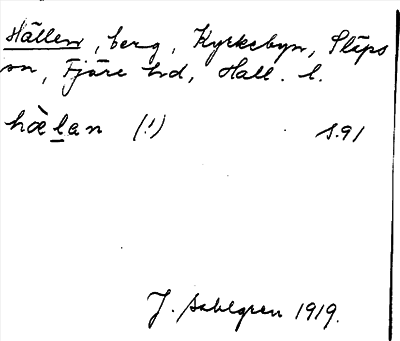 Hällen, berg, Kyrkebyn, Släps
sn, Fjäre hd, Hall. l.
hæ̀lan (!) S.91
J. Sahlgren 1919.